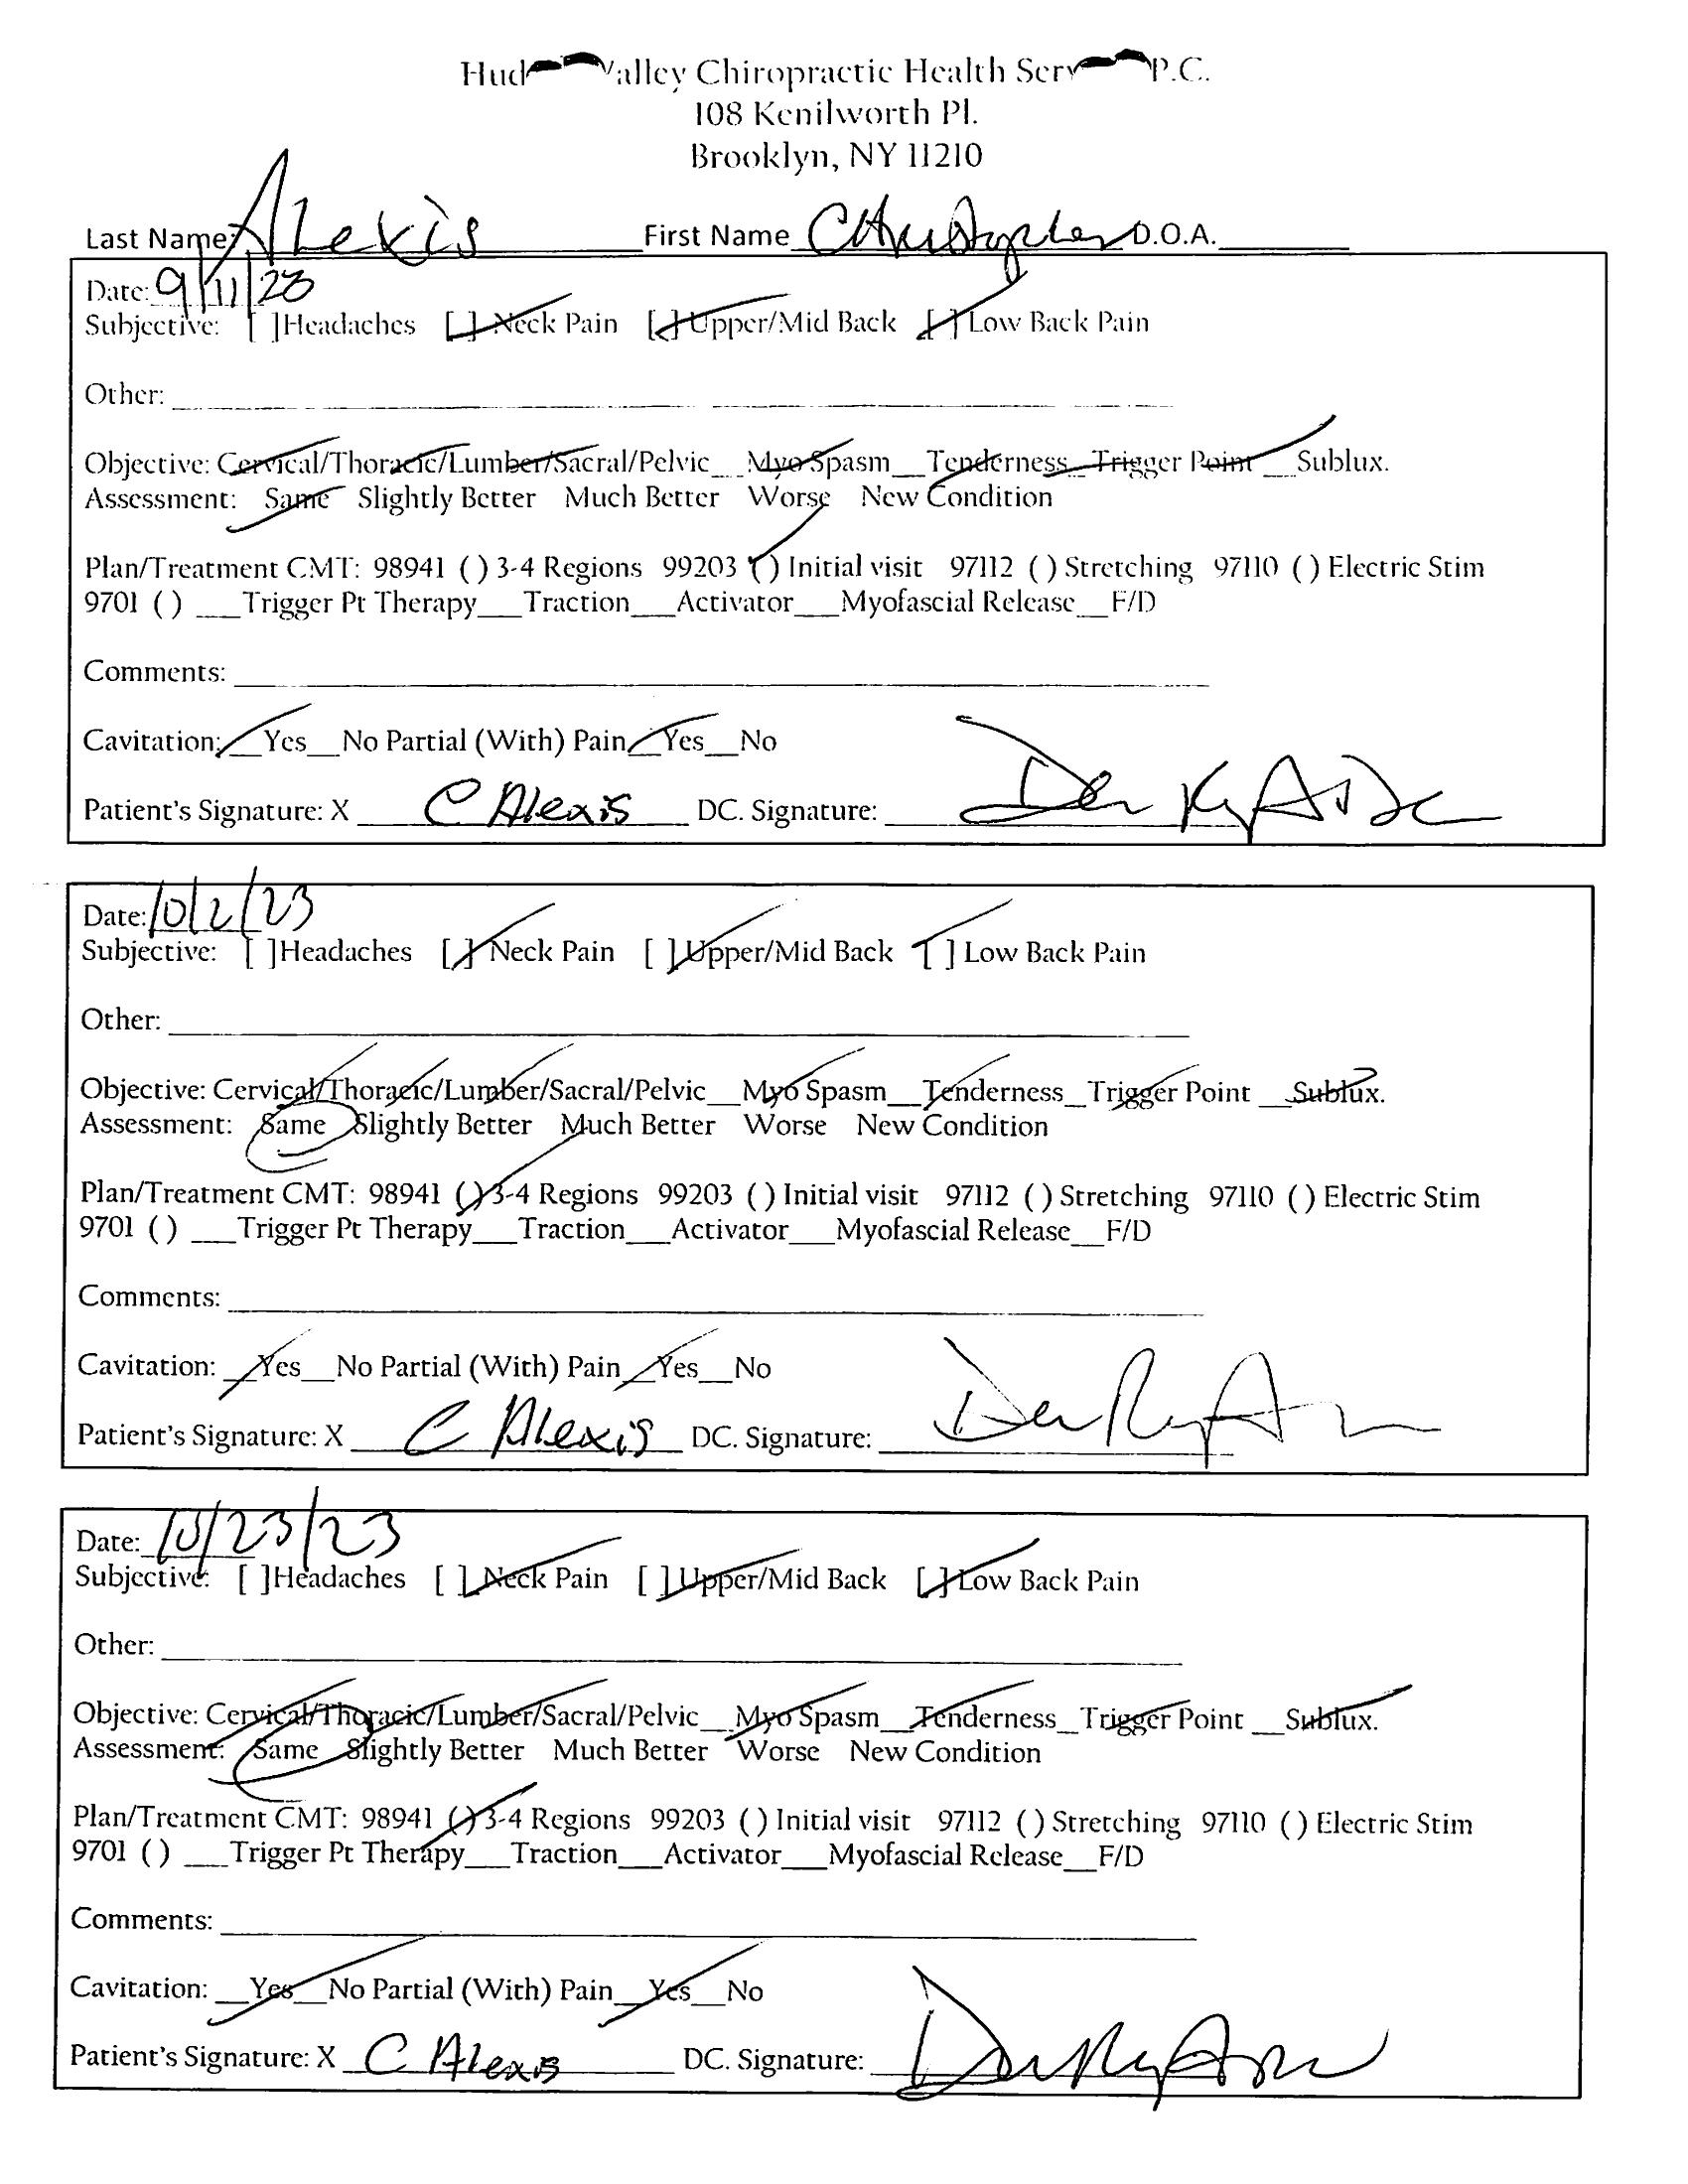 Hud Valley Chiropractic Health Serv P.C.
108 Kenilworth Pl.
Brooklyn, NY 11210
Last Name: Alexis First Name Christopher D.O.A.
Date: 9/11/23
Subjective: [ ]Headaches [ ] Neck Pain [ ] Upper/Mid Back [ ] Low Back Pain
Other:
Objective: Cervical/Thoracic/Lumber/Sacral/Pelvic__Myo Spasm__Tenderness_Trigger Point __Sublux.
Assessment: Same Slightly Better Much Better Worse New Condition
Plan/Treatment CMT: 98941 ( ) 3-4 Regions 99203 ( ) Initial visit 97112 ( ) Stretching 97110 ( ) Electric Stim
9701 ( ) ___Trigger Pt Therapy___Traction___Activator___Myofascial Release__F/D
Comments:
Cavitation:__Yes__No Partial (With) Pain__Yes__No
Patient's Signature: X C Alexis DC. Signature:
Date: 10/2/23
Subjective: [ ]Headaches [ ] Neck Pain [ ] Upper/Mid Back [ ] Low Back Pain
Other:
Objective: Cervical/Thoracic/Lumber/Sacral/Pelvic__Myo Spasm__Tenderness_Trigger Point __Sublux.
Assessment: Same Slightly Better Much Better Worse New Condition
Plan/Treatment CMT: 98941 ( ) 3-4 Regions 99203 ( ) Initial visit 97112 ( ) Stretching 97110 ( ) Electric Stim
9701 ( ) ___Trigger Pt Therapy___Traction___Activator___Myofascial Release__F/D
Comments:
Cavitation: __Yes__No Partial (With) Pain__Yes__No
Patient's Signature: X C Alexis DC. Signature:
Date: 10/23/23
Subjective: [ ]Headaches [ ] Neck Pain [ ] Upper/Mid Back [ ] Low Back Pain
Other:
Objective: Cervical/Thoracic/Lumber/Sacral/Pelvic__Myo Spasm__Tenderness_Trigger Point __Sublux.
Assessment: Same Slightly Better Much Better Worse New Condition
Plan/Treatment CMT: 98941 ( ) 3-4 Regions 99203 ( ) Initial visit 97112 ( ) Stretching 97110 ( ) Electric Stim
9701 ( ) ___Trigger Pt Therapy___Traction___Activator___Myofascial Release__F/D
Comments:
Cavitation: __Yes__No Partial (With) Pain__Yes__No
Patient's Signature: X C Alexis DC. Signature: